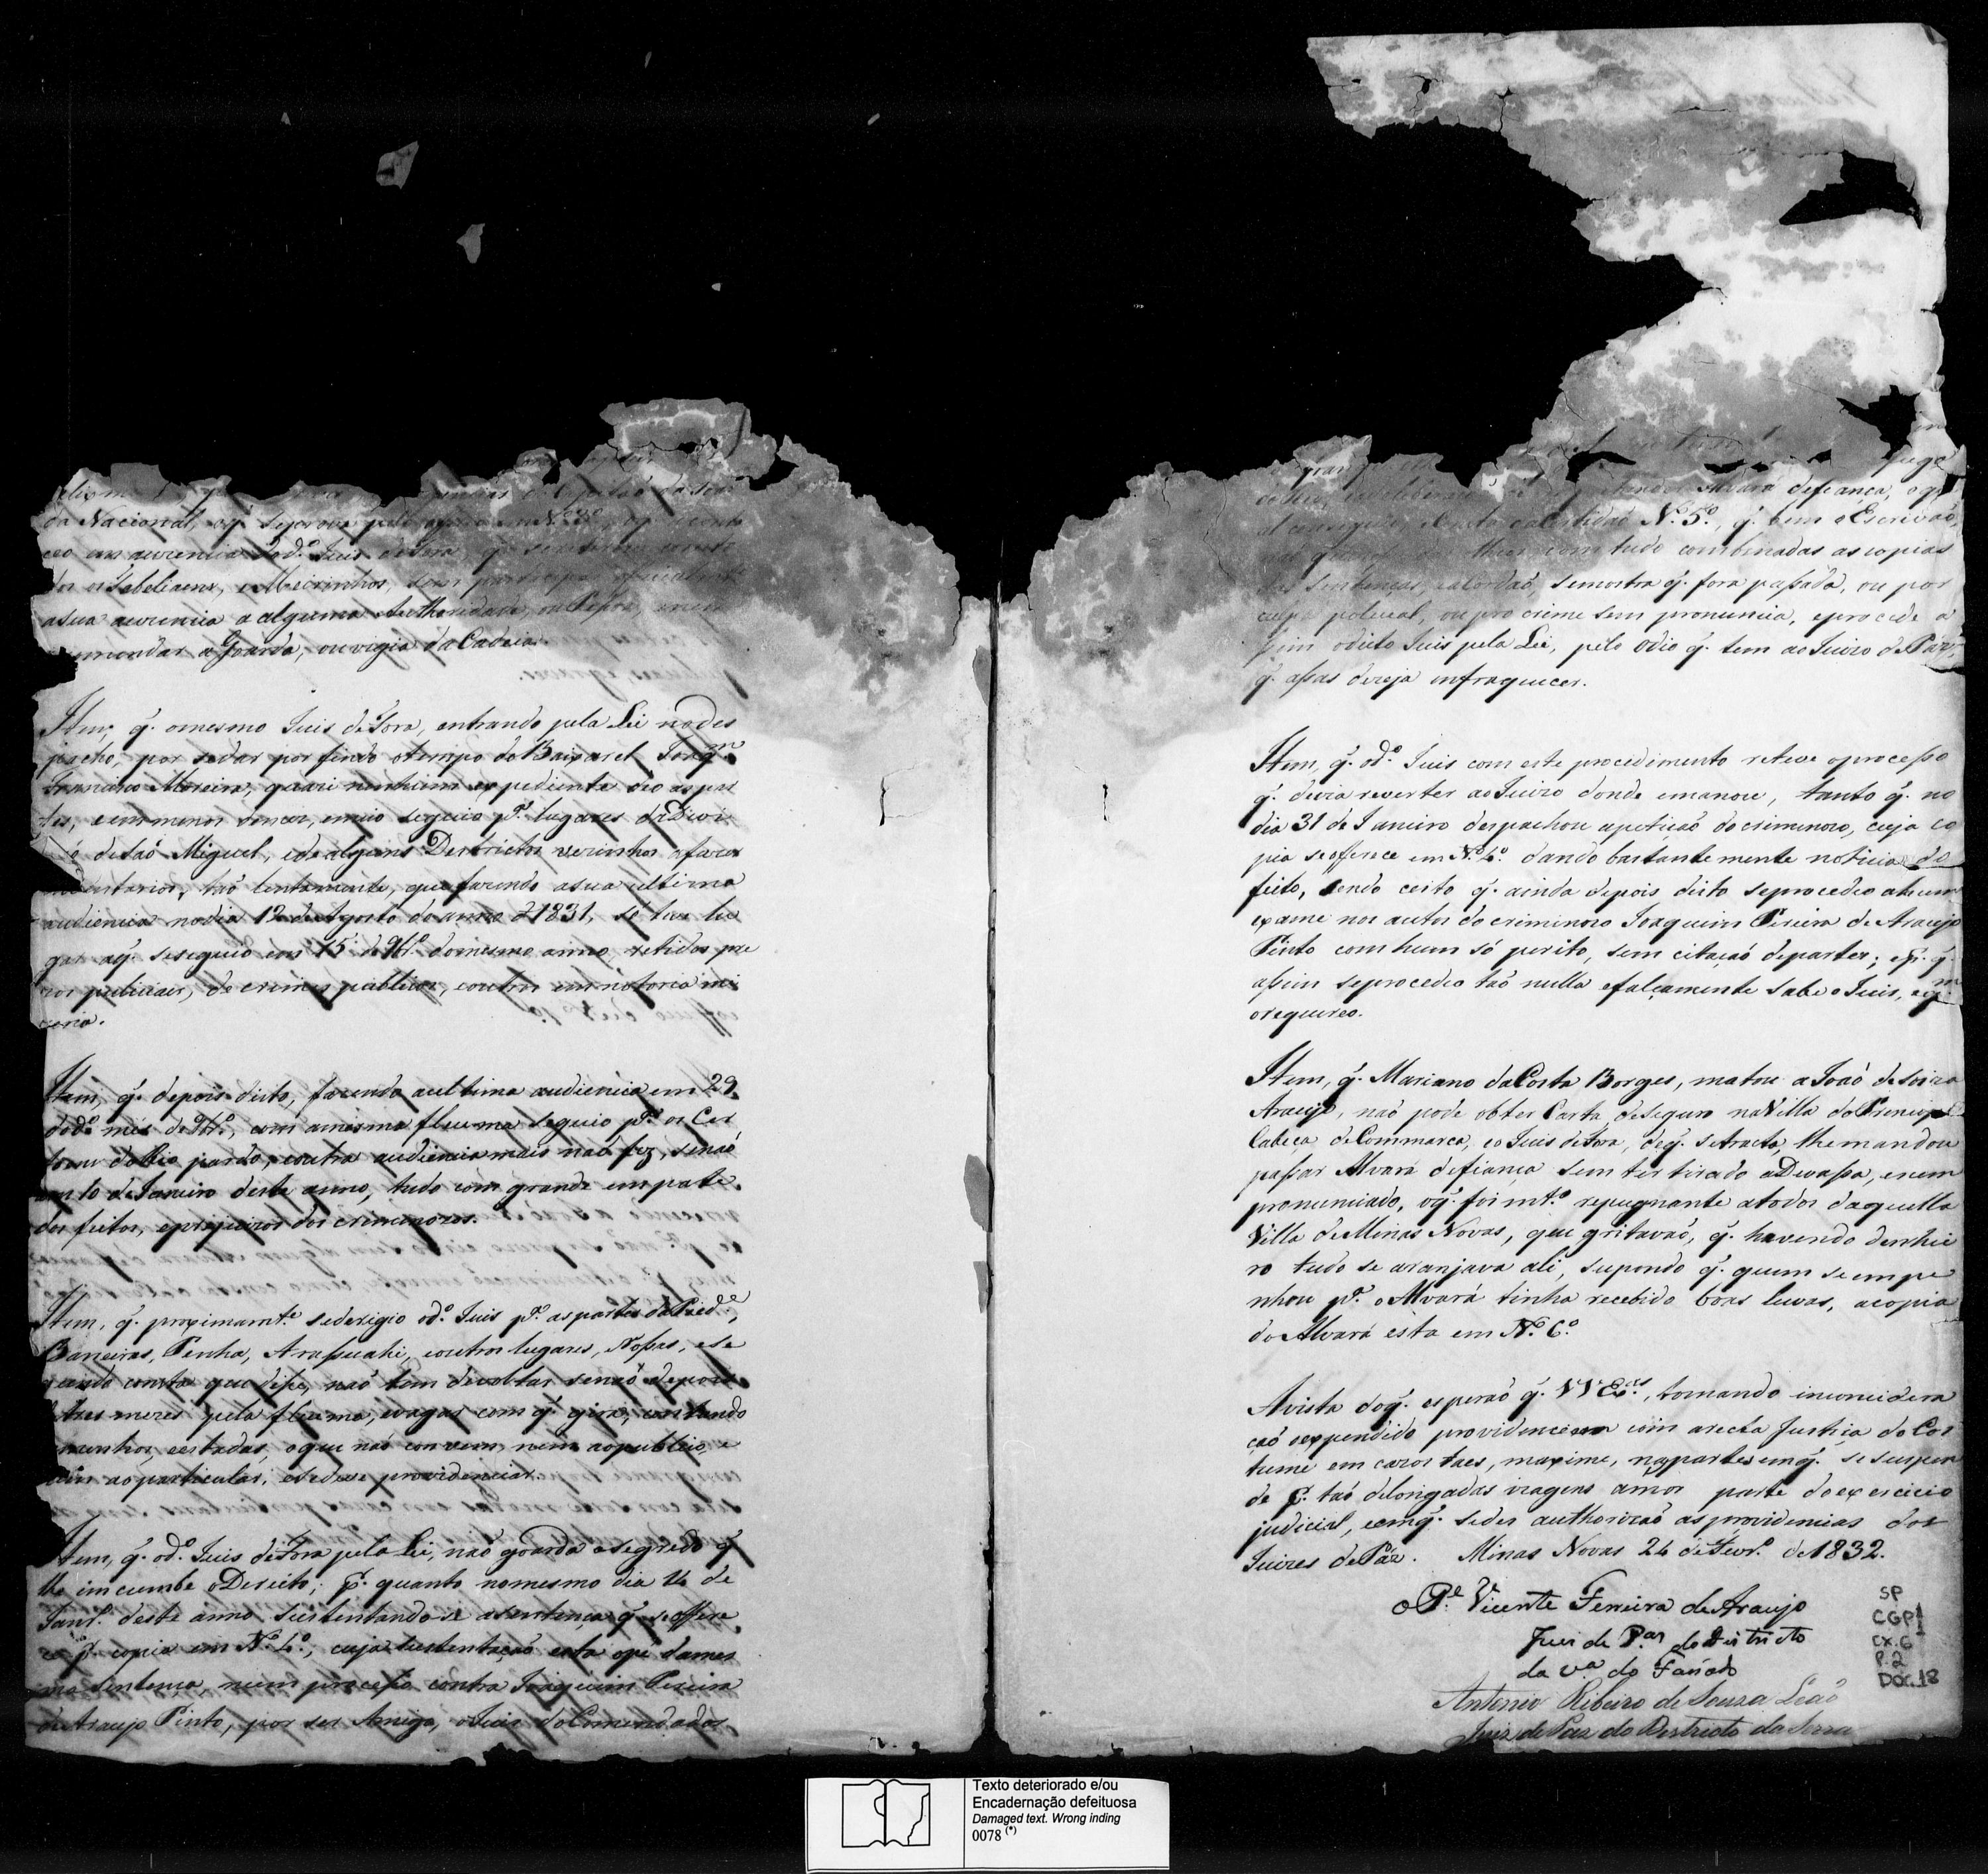 da Nacional, oq̃. seprova
ceo na auzencia do d.º Juis de Fora, q̃.
dos os Tabeliaens, e Meirinhos, sem
asua auzencia a alguma Authoridade, ou Pessoa, nem
a Goarda, ou vigia da Cadeia.
Item, q̃. omesmo Juis de Fora, entrando pela Lei nodes
pacho, por sedar por findo otempo do Baixarel Joaq.m
Francisco Moreira, quazi nenhum expediente deo as par
tes, e emmenos seguio p.ª lugares da Divi
deSaõ Miguel, edealguns Destrictos vezinhos afazer
taõ lentamente, que fazendo asua ultima
audiencia nodia 12 de Agosto do anno d 1831, só teve lu
gar aq̃. seseguio em 15 de 9br.º domesmo anno, retidos pre
zos judiciaes, de crimes publicos, eoutros em notoria mi
zeria.
Item, q̃. depois disto, fazendo aultima audiencia em 29
dod.º mes de 9br.º, com amesma fleuma seguio p.ª os Cer
toens do Rio pardo, eoutra audiencia mais naõ fez, senaõ
em 10 de Janeiro deste anno, tudo com grande empate
dos feitos, eprejuizos dos criminozos.
Item, q̃. proximam.te sederigio od.º Juis p.ª as partes da Pied.e,
Barreiras, Penha, Arassuahi, eoutros lugares, Nossas, ese
gundo consta que disse, naõ tem devoltar senaõ depois
de tres mezes pela fleuma, evagar com q̃. gira, contando
eestadas, oque naõ convem, nem aopublico, e
nem ao particular, esedeve providenciar.
Item, q̃. od.º Juis deFora pela Lei, naõ goarda osegredo q̃.
lhe imcumbe oDereito; p.r quanto nomesmo dia 14 de
Janr.º deste anno sustentando-se asentença q̃. seoffere
ce p.r copia em N.º 4.º, cuja sustentaçaõ esta ao pé dames
ma Sentença, num processo contra Joaquim Pereira
de Araujo Pinto, por ser Amigo, oJuis do Comendador
Alvará defiança, oq̃.
N.º 5.º, q̃. bem oEscrivaõ
com tudo combinadas as copias
das sentenças, eacordaõ, semostra q̃. fora passada, ou por
culpa policial, ou pro crime sem pronuncia, eprocede a
ssim odicto Juis pela Lei, pelo odio q̃. tem ao Juizo de Paz,
q̃. assas dezeja infraquecer.
Item, q̃. od.º Juis com este procedimento reteve oprocesso
q̃. devia reverter ao Juizo donde emanou, tanto q̃. no
dia 31 de Janeiro despachou apetiçaõ do criminozo, cuja co
pia seofferece em N.º 4.º dando bastantemente noticia do
feito, sendo certo q̃. ainda depois disto seprocedeo ahum
exame nos autos do criminozo Joaquim Pereira de Araujo
Pinto com hum só perito, sem citaçaõ departes; ep.r q̃.
assim seprocedeo taõ nulla efalçamente sabe o Juis, eq.m
orequereo.
Item, q̃. Mariano daCosta Borges, matou a Joaõ de Soiza
Araujo, naõ pode obter Carta deSeguro naVilla doPrincipe
Cabeça deCommarca, eo Juis deFora, deq̃. setracta, lhemandou
passar Alvará defiança sem ter tirado aDevassa, enem
pronunciado, oq̃. foi mt.º repugnante atodos daquella
Villa deMinas Novas, que gritavaõ, q̃. havendo dinhei
ro tudo se aranjava ali, supondo q̃. quem seempe
nhou p.ª oAlvará tinha recebido boas luvas, acopia
do Alvará esta em N.º 6.º
Avista doq̃. esperaõ q̃. VVEx.as, tomando inconcidera
çaõ oexpendido providenceem com arecta Justiça do Cos
tume em cazos taes, maxime, napartes emq̃. se suspen
de p.r taõ delongadas viagens amor parte doexercicio
judicial, eemq̃. sedes authorizaõ asprovidencias dos
Juizes dePaz. Minas Novas 24 de Fevr.º de1832.
o P.e Vicente Ferreira de Araujo
Juis de Pas do Districto
da v.a do Fanado
Antonio Ribeiro de Souza Leaõ
Juiz de Paz do Destricto da Serra
SP
CGP1
CX.6
P.2
DOC.18
Texto deteriorado e/ou
Encadernação defeituosa
Damaged text. Wrong inding
0078 (*)